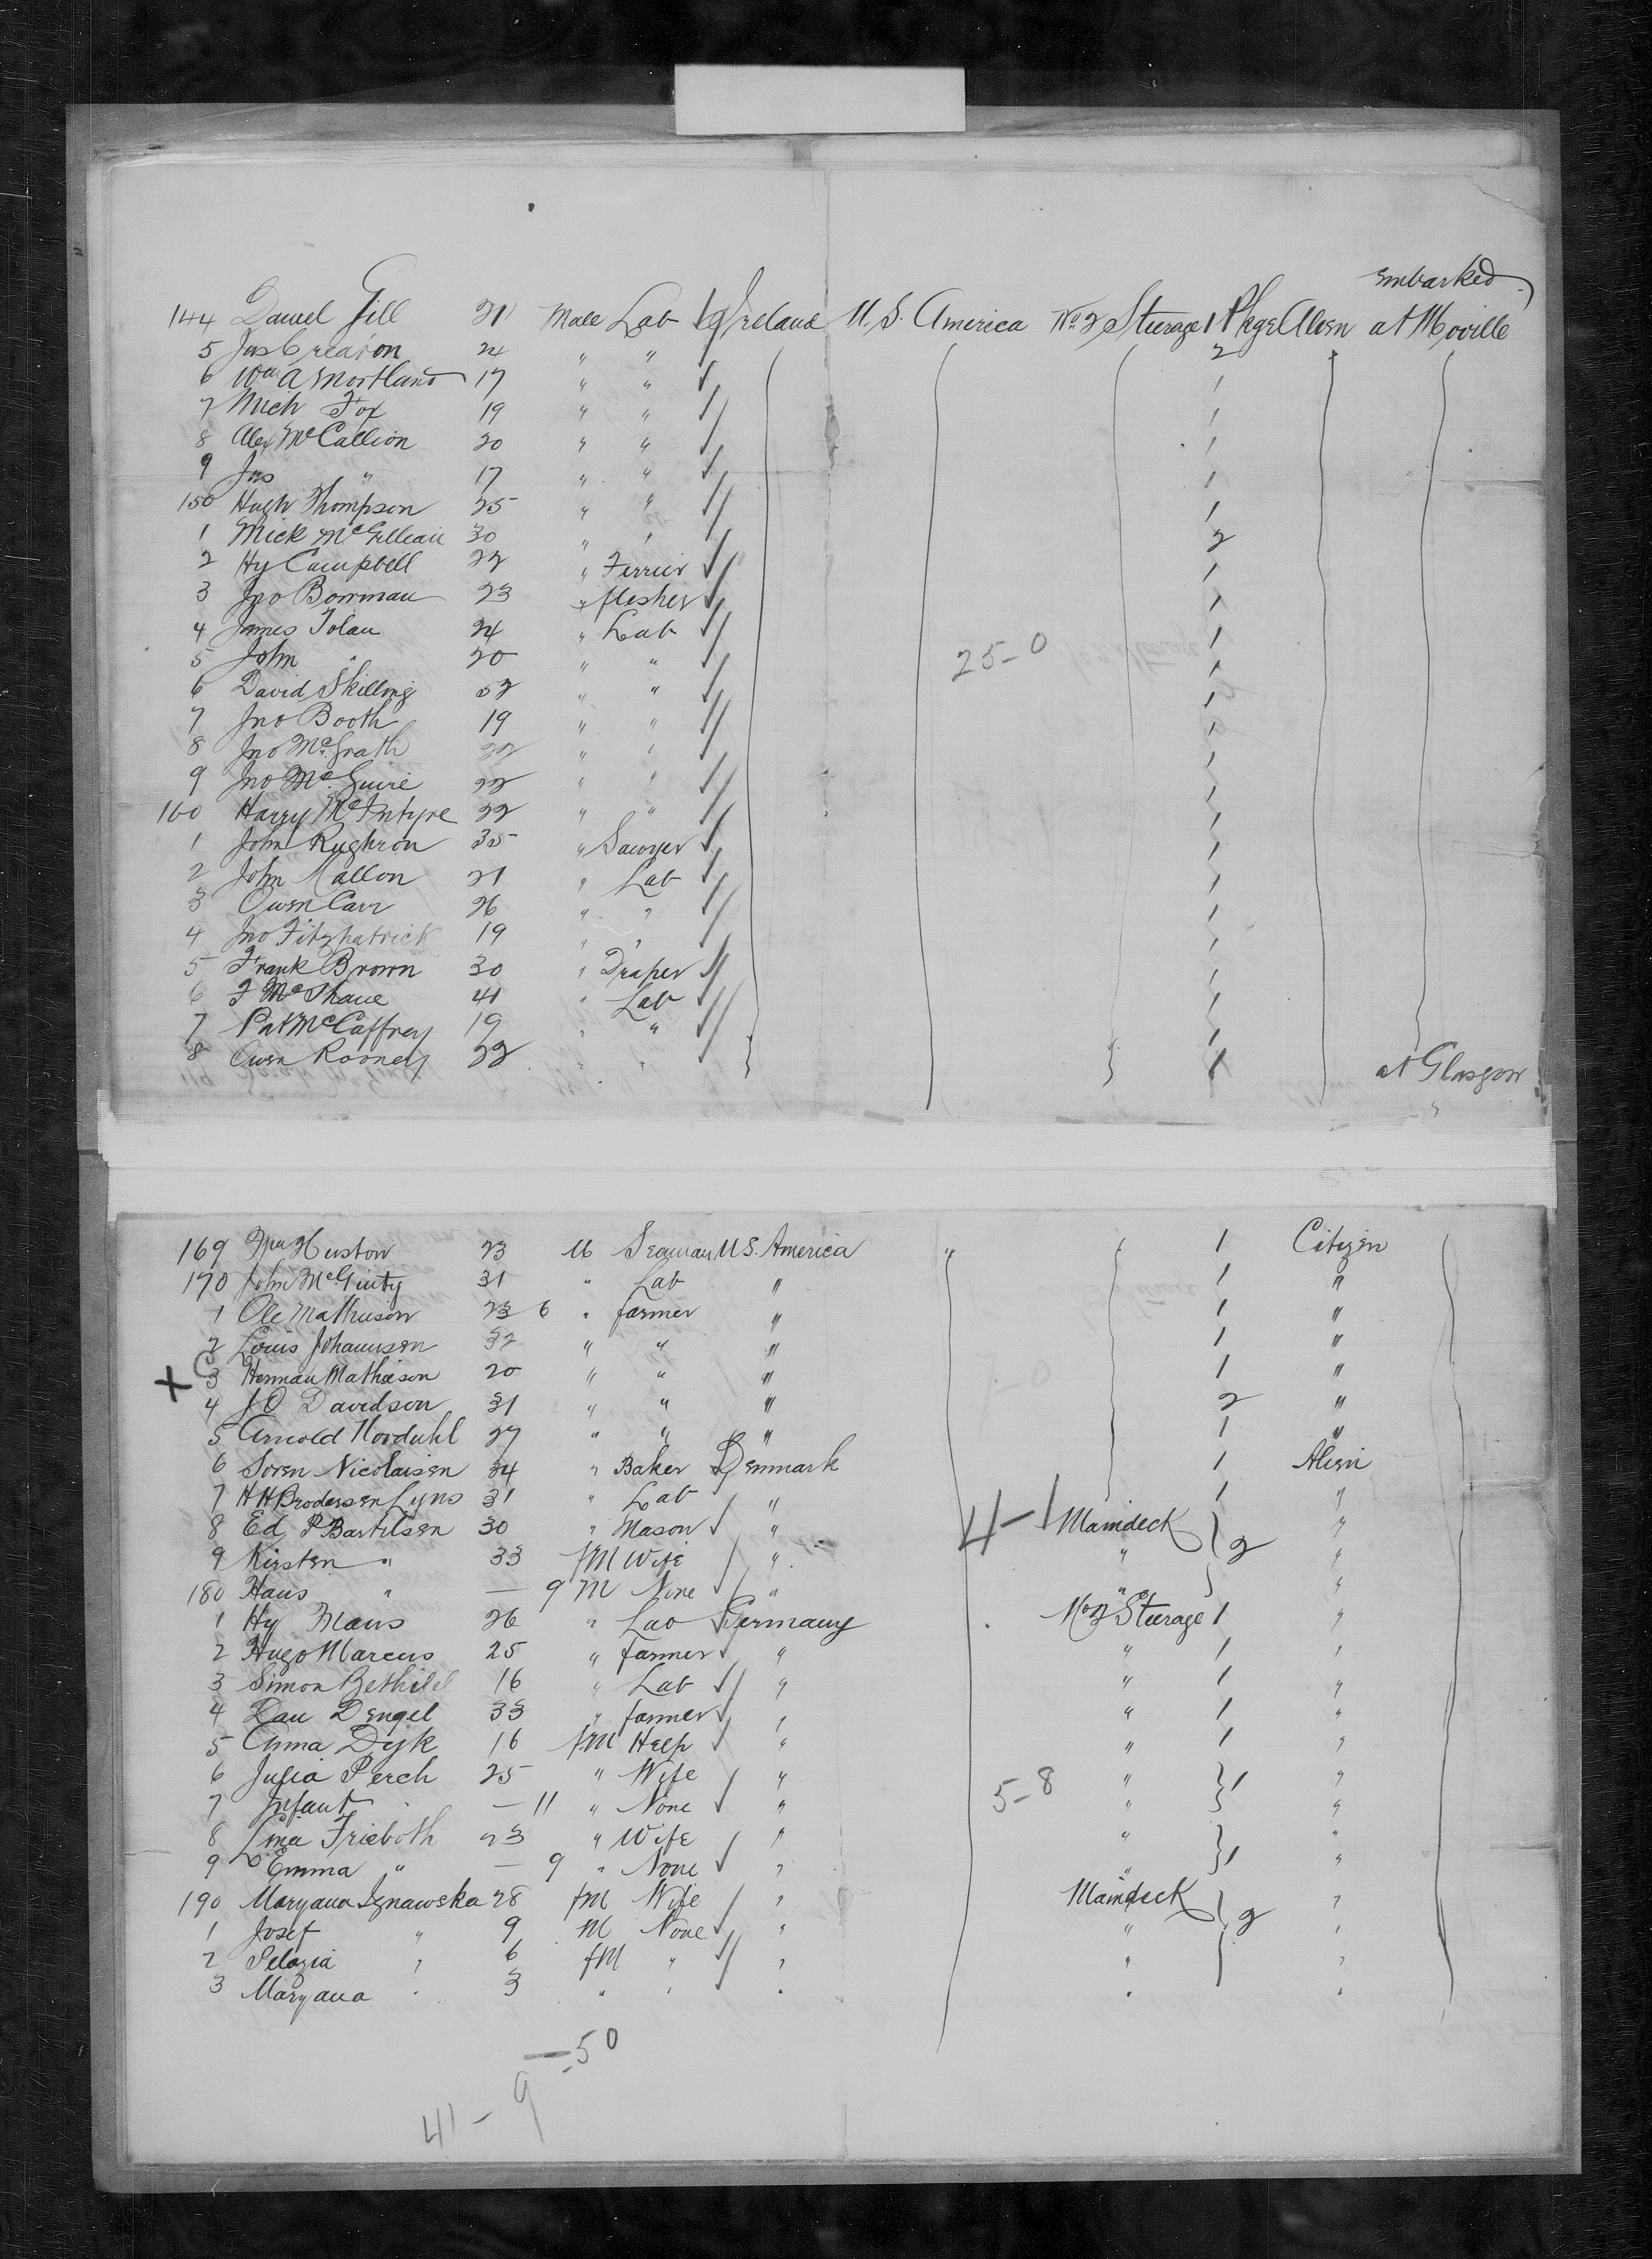 embarked
144 Daniel Gill 21 Male Lab Ireland U. S. America No. 2 Steerage 1 Pkge Alien at Moville
5 Jas Creaton 24 " " 2
6 Wm A Mortland 17 " " 1
7 Mich Fox 19 " " 1
8 Alex McCallion 20 " " 1
9 Jas " 17 " " 1
150 Hugh Thompson 25 " " 1
1 Mick McGillian 30 " " 2
2 Hy Campbell 22 " Ferrier 1
3 Jno Bowman 23 " flesher 1
4 James Tolan 24 " Lab 1
5 John " 20 " " 25-0 1
6 David Skilling 52 " " 1
7 Jno Booth 19 " " 1
8 Jno McGrath 22 " " 1
9 Jno McGuire 22 " " 1
160 Harry McIntyre 22 " " 1
1 John Rughron 35 " Sawyer 1
2 John Mallon 21 " Lab 1
3 Owen Carr 26 " " 1
4 Jno Fitzpatrick 19 " " 1
5 Frank Brown 30 " Draper 1
6 F McShane 41 " Lab 1
7 Pat McCaffrey 19 " " 1
8 Owen Rooney 22 " " 1 at Glasgow
"
169 Huston 23 M Seaman U S. America " 1 Citizen
170 John McGinty 31 " Lab " 1 "
1 Ole Mathieson 23 6 " farmer " 1 "
2 Louis Johannsen 32 " " " 1 "
X 3 Herman Mathieson 20 " " " 1 "
4 J O Davidson 31 " " " 2 "
5 Arnold Norduhl 27 " " " 1 "
6 Soren Nicolaisen 24 " Baker Denmark 1 Alien
7 H H Brodersen Lyns 31 " Lab " 1 "
8 Ed P Bartelsen 30 " Mason " 4-1 Maindeck 2 "
9 Kirsten " 33 fM Wife " " "
180 Hans " — 9 M None " " "
1 Hy Maus 26 " Lab Germany No 2 Steerage 1 "
2 Hugo Marcus 25 " farmer " " 1 "
3 Simon 16 " Lab " " 1 "
4 Dengel 33 " farmer " " 1 "
5 Anna Dyk 16 fM Help " " 1 "
6 Julia Perch 25 " Wife " 5-8 " 1 "
7 Infant — 11 " None " " "
8 Lina Frieboth 23 " Wife " " 1 "
9 Emma " — 9 " None " " "
190 Maryana Ignawska 28 fM Wife " Maindeck 2 "
1 Josef " 9 M None " " "
2 Pelagia " 6 fM " " " "
3 Maryana " 3 " " " " "
—50
41-9